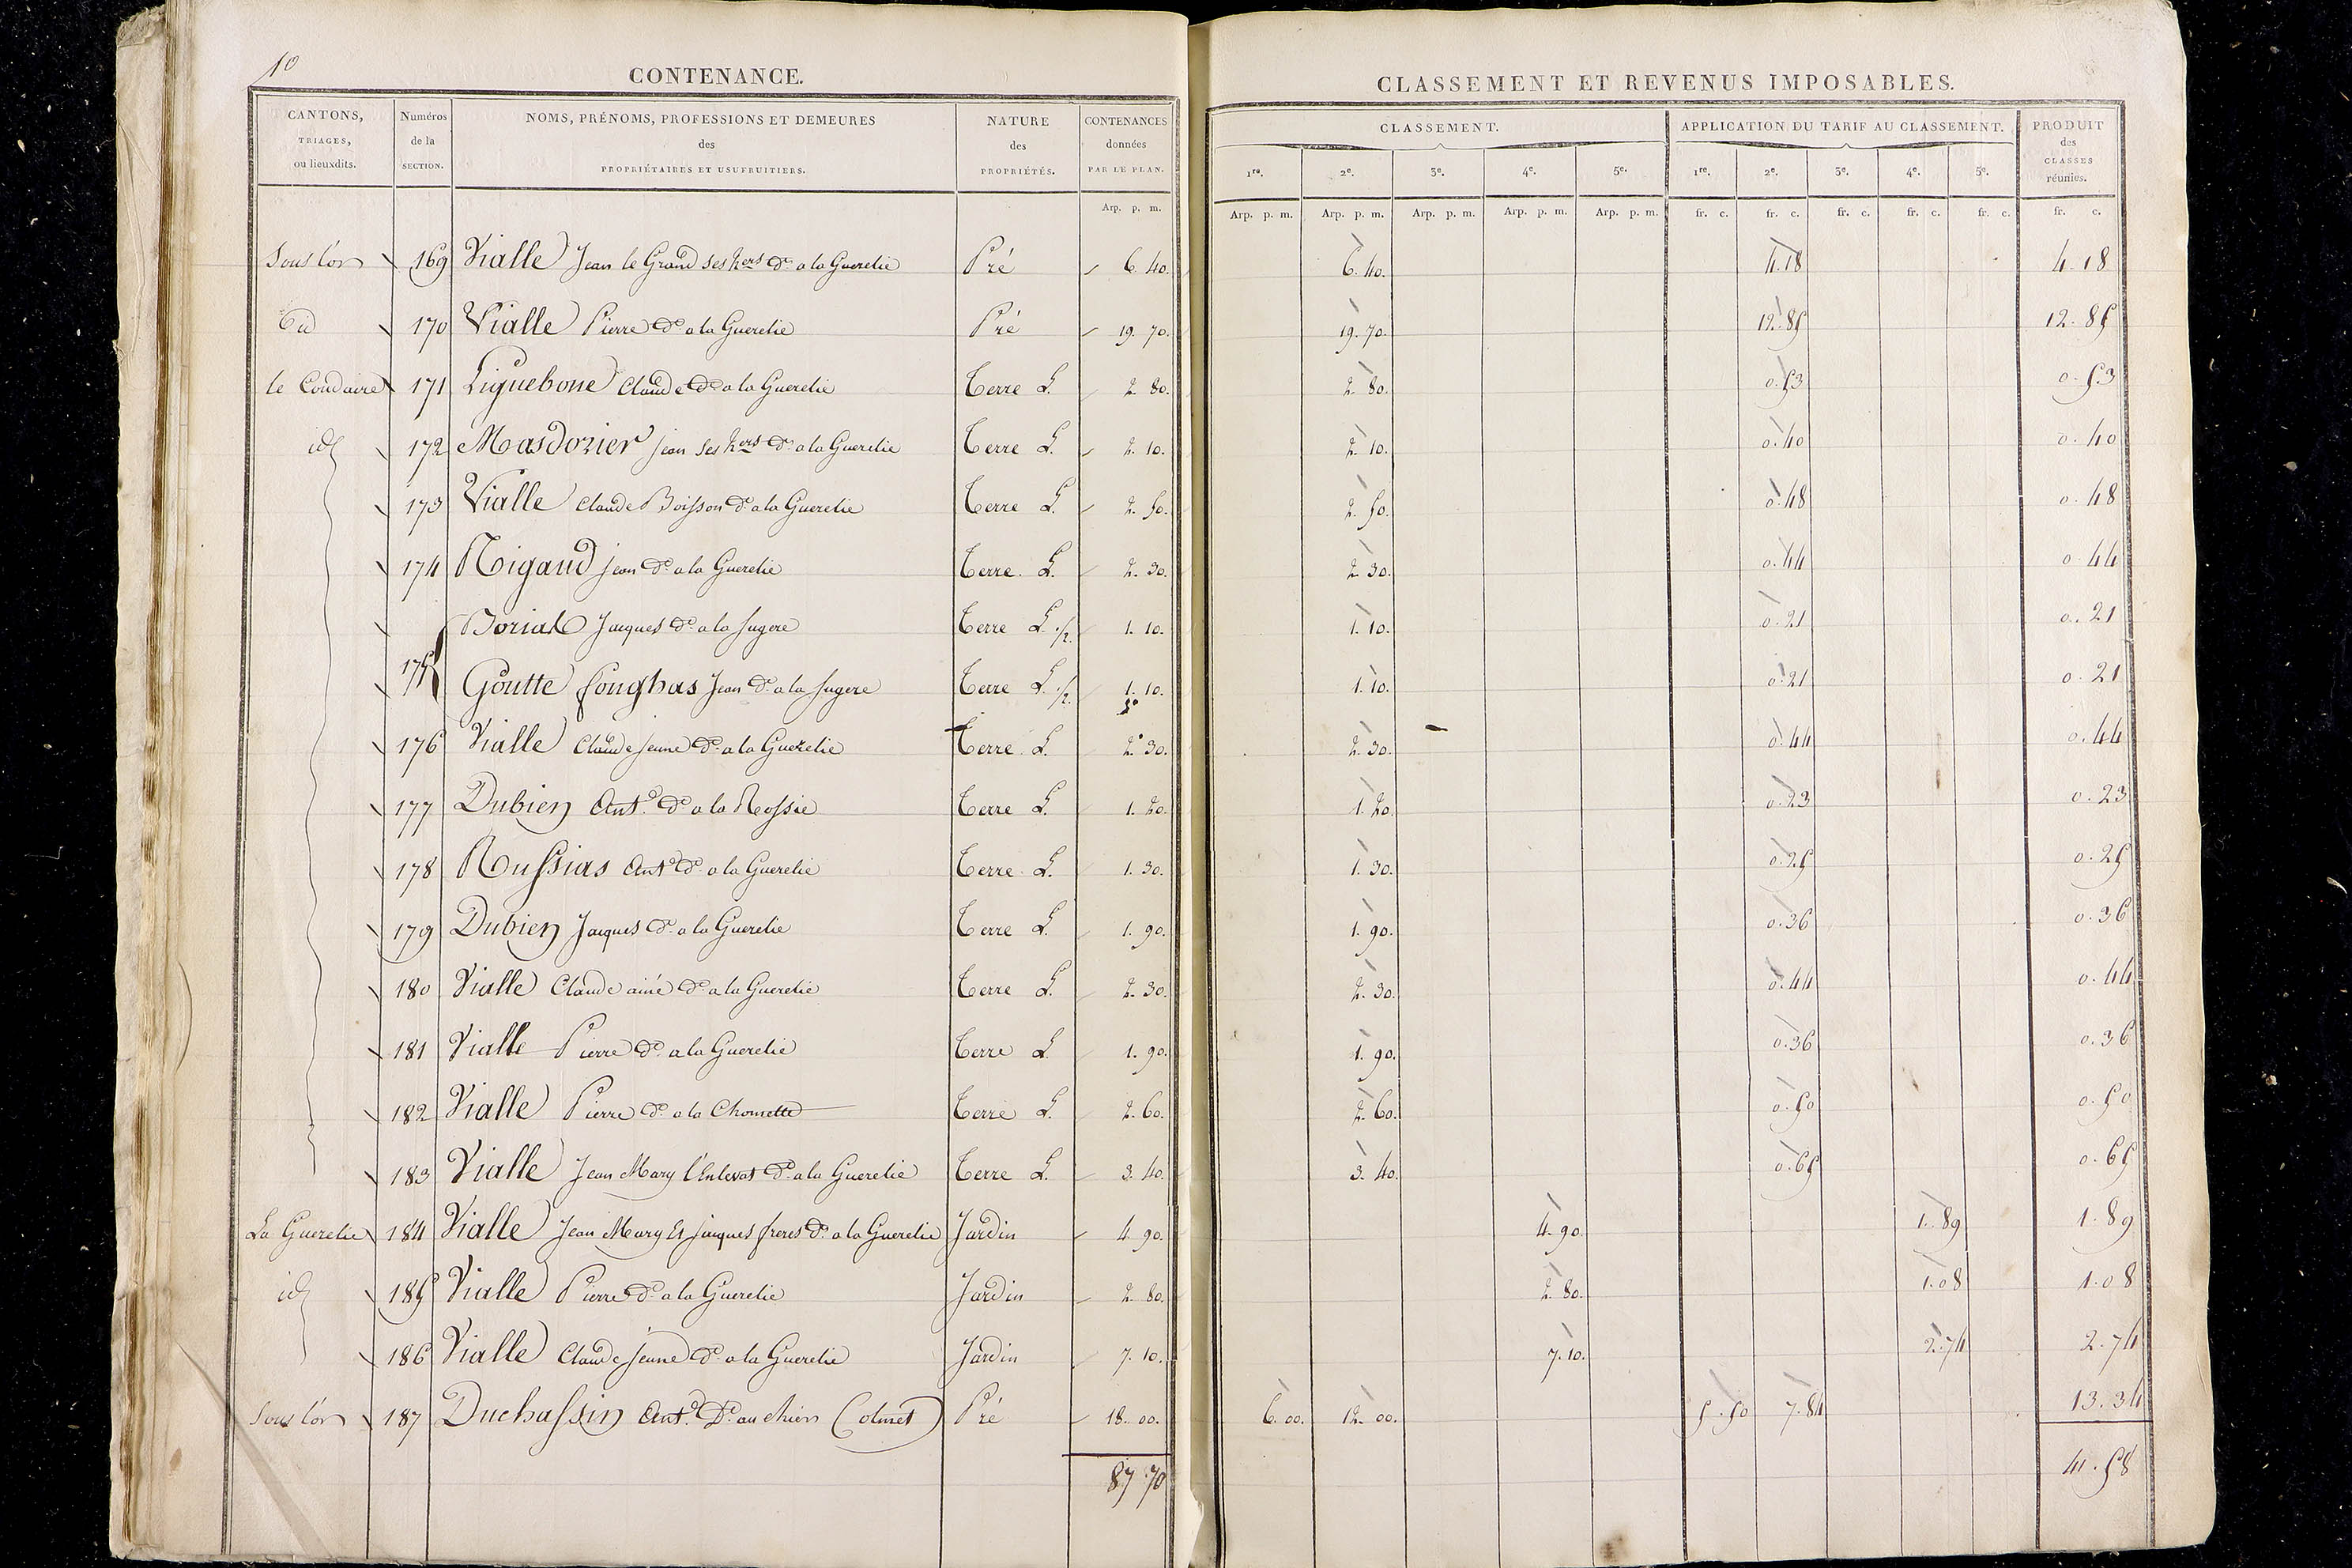 10
CONTENANCE.
CLASSEMENT ET REVENUS IMPOSABLES.
CANTONS, TRIAGES, ou lieuxdits. Numéros de la SECTION. NOMS, PRÉNOMS, PROFESSIONS ET DEMEURES des PROPRIÉTAIRES ET USUFRUITIERS. NATURE des PROPRIÉTÉS. CONTENANCES données PAR LE PLAN. CLASSEMENT. APPLICATION DU TARIF AU CLASSEMENT. PRODUIT des CLASSES réunies.
1re. 2e. 3e. 4e. 5e. 1re. 2e. 3e. 4e. 5e.
Arp. p. m. Arp. p. m. Arp. p. m. Arp. p. m. Arp. p. m. Arp. p. m. fr. c. fr. c. fr. c. fr. c. fr. c. fr. c.
Sous l'or 169 Vialle Jean le Grand ses hers d. a la Guerelie Pré 6. 40. 6. 40. 4.18 4.18
170 Vialle Pierre d. a la Guerelie Pré 19. 70. 19. 70. 12.85 12.85
le Coudaire 171 Liguebone Claude d. a la Guerelie Terre L. 2 80. 2 80. 0.53 0.53
id 172 Masdorier jean ses hers d. a la Guerelie Terre L. 2. 10. 2. 10. 0.40 0.40
173 Vialle Claude Boisson d. a la Guerelie Terre L. 2. 50. 2. 50. 0.48 0.48
174 Rigaud jean d. a la Guerelie Terre L. 2. 30. 2. 30. 0.44 0.44
175 Jacques d. a la Sugere Terre L. 1/2. 1. 10. 1. 10. 0.21 0.21
Goutte fonghas Jean d. a la Sugere Terre L. 1/2. 1. 10. 1. 10. 0.21 0.21
176 Vialle Claude jeune d. a la Guerelie Terre L. 2. 30. 2. 30. 0.44 0.44
177 Dubien Ant.e d. a la Rossie Terre L. 1. 20. 1. 20. 0.23 0.23
178 Russias Ant.e d. a la Guerelie Terre L. 1. 30. 1. 30. 0.25 0.25
179 Dubien Jacques d. a la Guerelie Terre L. 1. 90. 1. 90. 0.36 0.36
180 Vialle Claude ainé d. a la Guerelie Terre L. 2. 30. 2. 30. 0.44 0.44
181 Vialle Pierre d. a la Guerelie Terre L. 1. 90. 1. 90. 0.36 0.36
182 Vialle Pierre d. a la Chomette Terre L. 2. 60. 2. 60. 0.50 0.50
183 Vialle Jean Mary l'Enlevat d. a la Guerelie Terre L. 3. 40. 3. 40. 0.65 0.65
La Guerelie 184 Vialle Jean Mary Et jacques freres d. a la Guerelie Jardin 4. 90. 4. 90. 1.89 1.89
id 185 Vialle Pierre d. a la Guerelie Jardin 2 80. 2 80. 1.08 1.08
186 Vialle Claude jeune d. a la Guerelie Jardin 7. 10. 7. 10. 2.74 2.74
Sous l'or 187 Duchassin Ant.e D. au chien Colmet Pré 18. 00. 6. 00. 12. 00. 5.50 7.84 13.34
87 70 41.58